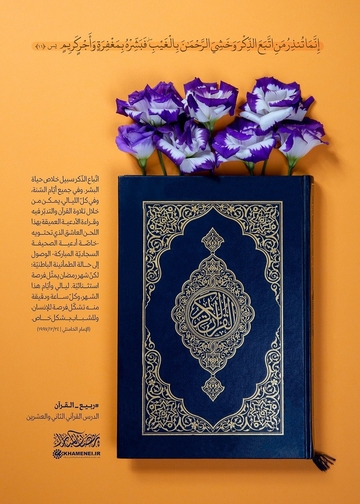 إِنَّمَا تُنذِرُ مَنِ اتَّبَعَ الذِّكْرَ وَخَشِيَ الرَّحْمَٰنَ بِالْغَيْبِ فَبَشِّرْهُ بِمَغْفِرَةٍ وَأَجْرٍ كَرِيمٍ یس ﴿۱۱﴾
اتّباع الذكر سبيل خلاص حياة
البشر. وفي جميع أيّام السّنة،
وفي كلّ الليالي يمكن من
خلال تلاوة القرآن والتدبّر فيه
وقراءة الأدعية العميقة بهذا
اللحن العاشق الذي تحتويه
-خاصّة أدعية الصحيفة
السجاديّة المباركة- الوصول
إلى حالة الطمأنينة الباطنيّة؛
لكنّ شهر رمضان يمثّل فرصة
استثنائيّة. ليالي وأيّام هذا
الشهر، وكلّ ساعة ودقيقة
منه تشكّل فرصة للإنسان،
وللشباب بشكل خاص.
القرآن الكريم
#ربيع_القرآن
الدرس القرآني الثاني والعشرين
KHAMENEI.IR